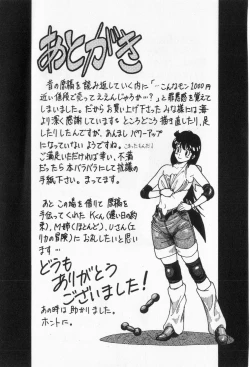 あとがき
昔の原稿を読み返していく内に「…こんなモン1000円
近い値段で売ってええんじゃろか…?」と罪悪感を覚えて
しまいました。だからお買い上げ下さったみな様には海
より深く感謝していますところどころ描き直したり、足
したりしたんですが、あんましパワーアップ
になっていないようですね。
ご満足いただければ幸い、不満
だったら本バラバラにして抗議の
手紙下さい。まってます。
あとこの場を借りて原稿を
手伝ってくれたKくん(遠い日の約
束)、M姉(ほとんど)、Uさん(エ
リカの冒険)にお礼したいと思い
ます…
どうも
ありがとう
ございました!
あの時は助かりました。
ホントに。